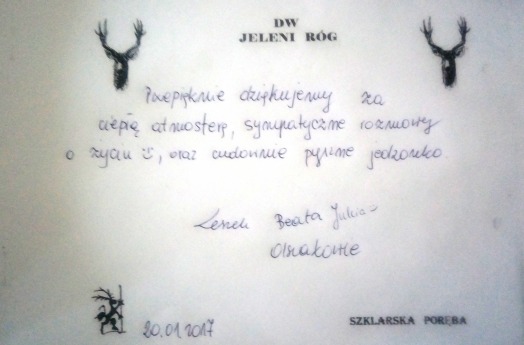 DW
JELENI RÓG
Przepięknie dziękujemy za
ciepłą atmosferę, sympatyczne rozmowy
o życiu ☺, oraz cudownie pyszne jedzonko.
Leszek Beata Julia
20.01.2017
SZKLARSKA PORĘBA